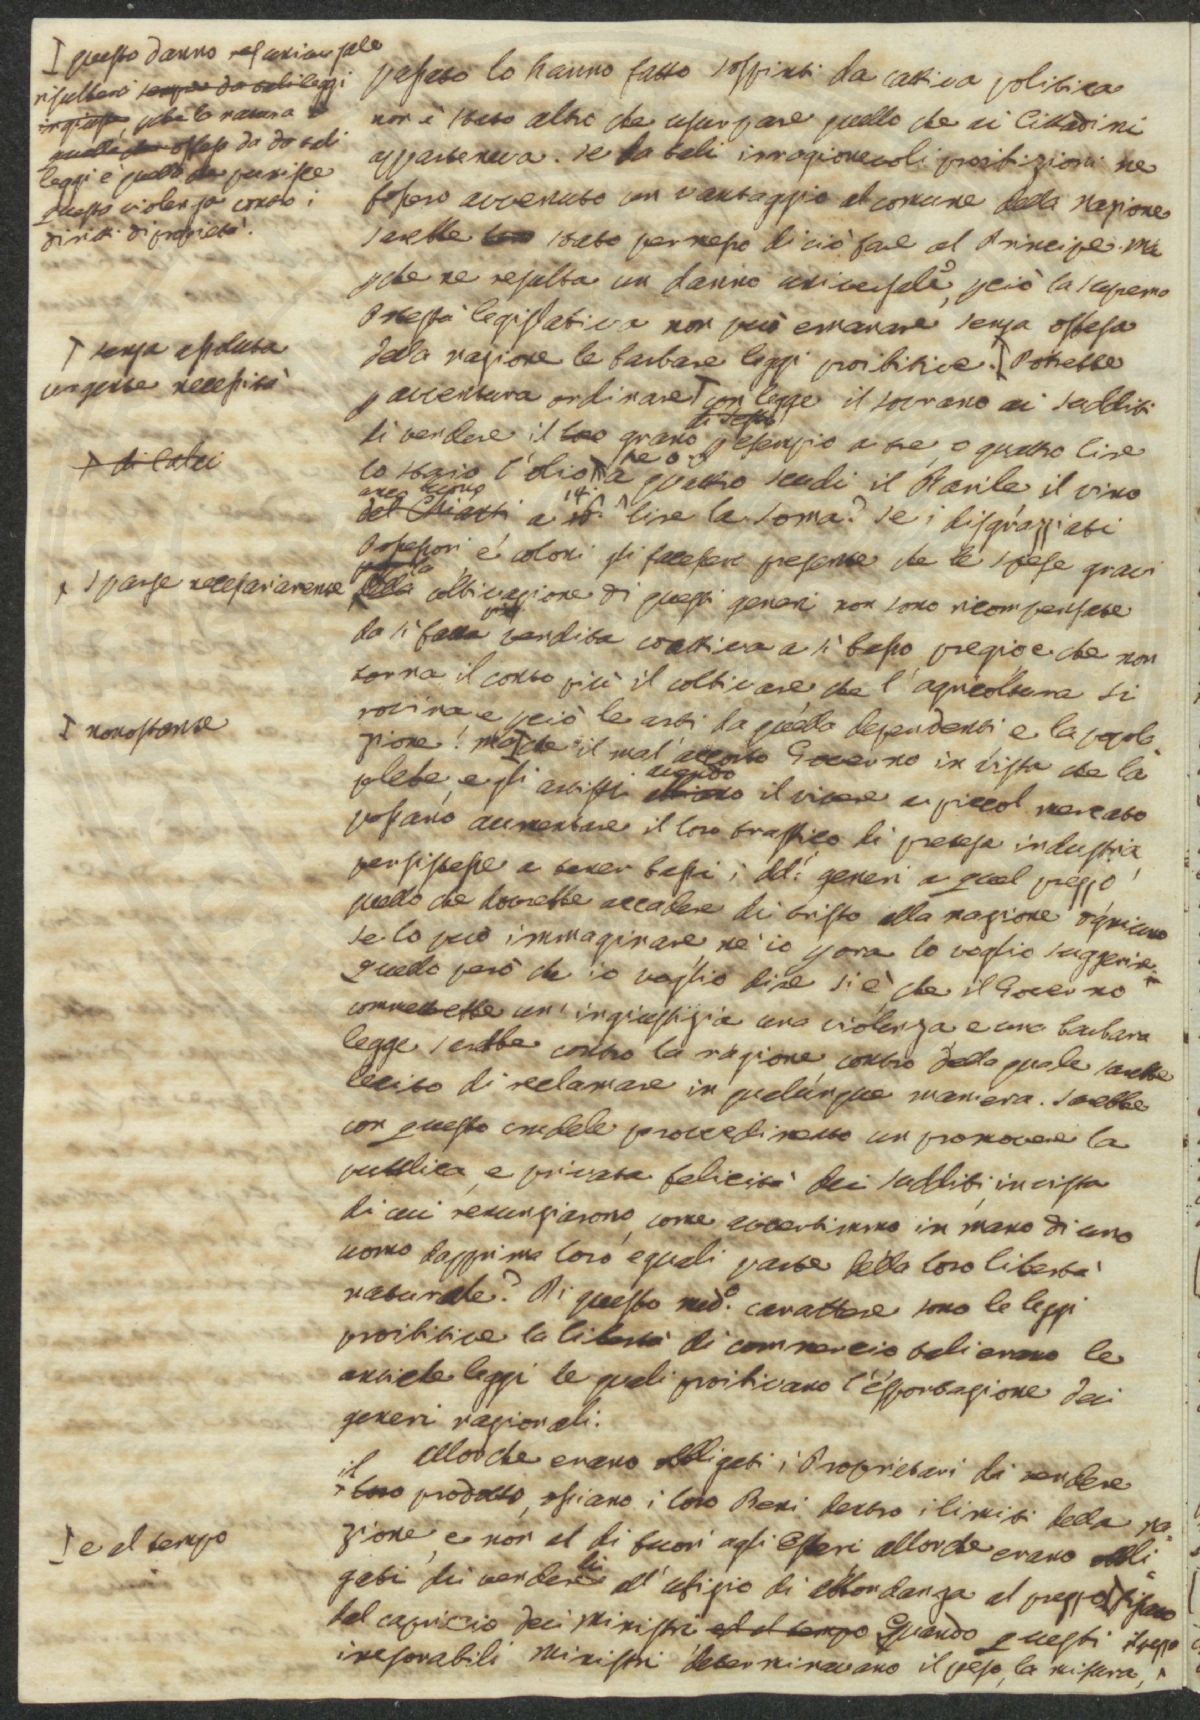 I questo danno universale
risulterà sempre da tali leggi
ingiuste, pchè la natura è
quella che offesa da da tali
leggi è quella che punisce
questa violenza contro i
diritti di proprietà.
passato lo hanno fatto sospinti da cattiva politica
non è stato altro che usurpare quello che ai Cittadini
apparteneva. Se da tali irragionevoli proibizioni ne
fosse avvenuto un vantaggio al comune della Nazione
sarebbe stato permesso di ciò fare al Principe. Ma
pchè ne resulta un danno universale, pciò la suprema
Potestà legislativa non può emanare senza offesa
I senza assoluta
urgente necessità
della nazione le barbare leggi proibitive. Potrebbe
p avventura ordinare con legge il sovrano ai sudditi
di vendere il loro grano p esempio a tre, o quattro lire
di Calci
lo staio l'olio a quattro scudi il Barile il vino
del Chianti a 14 lire la soma? Se i disgraziati
Possessori, e coloni gli facessero presente che le spese gravi
sparse necessariamente
della coltivazione di questi generi non sono ricompensate
da sì fatta vendita coattiva a sì basso pregio e che non
torna il conto più il coltivare che l'agricoltura si
rovina, e pciò le arti da quella dependenti e la popola
I nonostante
zione! Ma che il mal accorto Governo in vista che la
plebe, e gli artisti avendo il vivere a piccol mercato
possano aumentare il loro traffico di pretesa industria
persistesse a tener bassi i dd.i generi a quel prezzo,
quello che dovrebbe accadere di tristo alla nazione ognuno
se lo può immaginare nè io p ora lo voglio suggerire.
Quello però che io voglio dire si è, che il Governo
commetterebbe un' ingiustizia una violenza, e una barbara
legge sarebbe contro la ragione, contro della quale sarebbe
lecito di reclamare in qualunque maniera. Sarebbe
con questo crudele provvedimento un promovere la
pubblica, e privata felicità dei sudditi, in vista
di cui renunziarono, come avvertimmo in mano di uno
uomo dapprima loro eguali parte della loro libertà
naturale? Di questo med.o carattere sono le leggi
proibitive la libertà di commercio tali erano le
antiche leggi le quali proibivano l'esportazione dei
generi nazionali.
Allorchè erano obbligati i Proprietari di vendere
il loro prodotto, ossiano i loro Beni dentro i limiti della na
I e al tempo
zione, e non al di fuori agli Esteri allorchè erano obbli
gati di venderli all' ufizio di abbondanza al prezzo fissato
dal capriccio dei Ministri ed al tempo Quando questi stessi
inesorabili Ministri determinavano il peso, la misura,